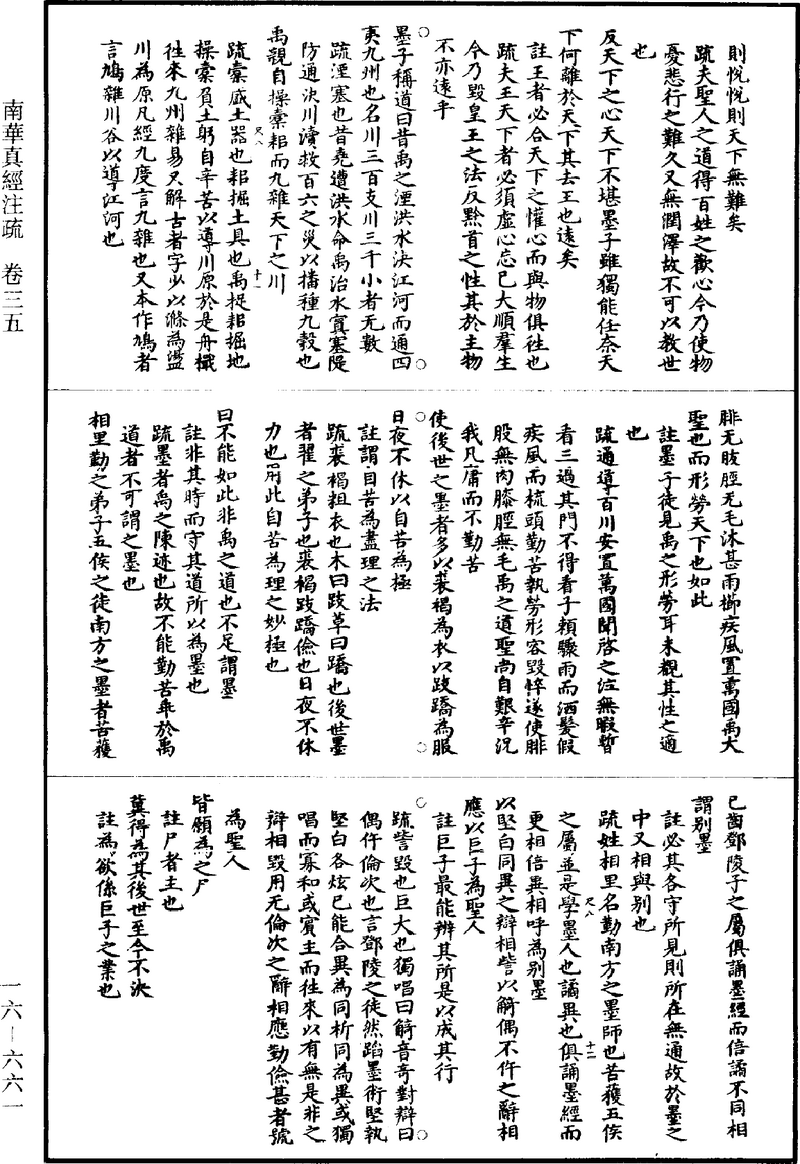 南華真經注疏　卷三五
則悅悅則天下無難矣
疏夫聖人之道得百姓之歡心今乃使物
憂悲行之難久又無潤澤故不可以教世
也
反天下之心天下不堪墨子雖獨能任奈天
下何離於天下其去王也遠矣
註王者必合天下之懽心而與物俱往也
疏夫王天下者必須虛心忘己大順羣生
今乃毀皇王之法反黔首之性其於主物
不亦遠乎
墨子稱道曰昔禹之湮洪水決江河而通四
夷九州也名川三百支川三千小者无數
疏湮塞也昔堯遭洪水命禹治水寘塞隄
防通決川瀆救百六之災以播種九穀也
禹親自操橐耜而九雜天下之川
疏橐盛土器也耜掘土具也禹捉耜掘地
操橐負土躬自辛苦以導川原於是舟檝
往來九州雜易又解古者字少以滌為盪
川為原凡經九度言九雜也又本作鳩者
言鳩雜川谷以導江河也
腓无胈脛无毛沐甚雨櫛疾風置萬國禹大
聖也而形勞天下也如此
註墨子徒見禹之形勞耳未覩其性之適
也
疏通導百川安置萬國聞啓之泣無暇暫
看三過其門不得看子賴驟雨而洒髮假
疾風而梳頭勤苦執勞形容毀悴遂使腓
股無肉膝脛無毛禹之道聖尚自艱辛況
我凡庸而不勤苦
使後世之墨者多以裘褐為衣以跂蹻為服
日夜不休以自苦為極
註謂自苦為盡理之法
疏裘褐粗衣也木曰跂草曰蹻也後世墨
者翟之弟子也裘褐跂蹻儉也日夜不休
力也用此自苦為理之妙極也
曰不能如此非禹之道也不足謂墨
註非其時而守其道所以為墨也
疏墨者禹之陳迹也故不能勤苦乖於禹
道者不可謂之墨也
相里勤之弟子五侯之徒南方之墨者苦獲
已齒鄧陵子之屬俱誦墨經而倍譎不同相
謂別墨
註必其各守所見則所在無通故於墨之
中又相與別也
疏姓相里名勤南方之墨師也苦獲五侯
之屬並是學墨人也譎異也俱誦墨經而
更相倍異相呼為別墨
以堅白同異之辯相訾以觭偶不仵之辭相
應以巨子為聖人
註巨子最能辨其所是以成其行
疏訾毀也巨大也獨唱曰觭音奇對辯曰
偶仵倫次也言鄧陵之徒然蹈墨術堅執
堅白各炫己能合異為同析同為異或獨
唱而寡和或賓主而往來以有無是非之
辯相毀用无倫次之辭相應勤儉甚者號
為聖人
皆願為之尸
註尸者主也
冀得為其後世至今不決
註為欲係巨子之業也
一六—六六一